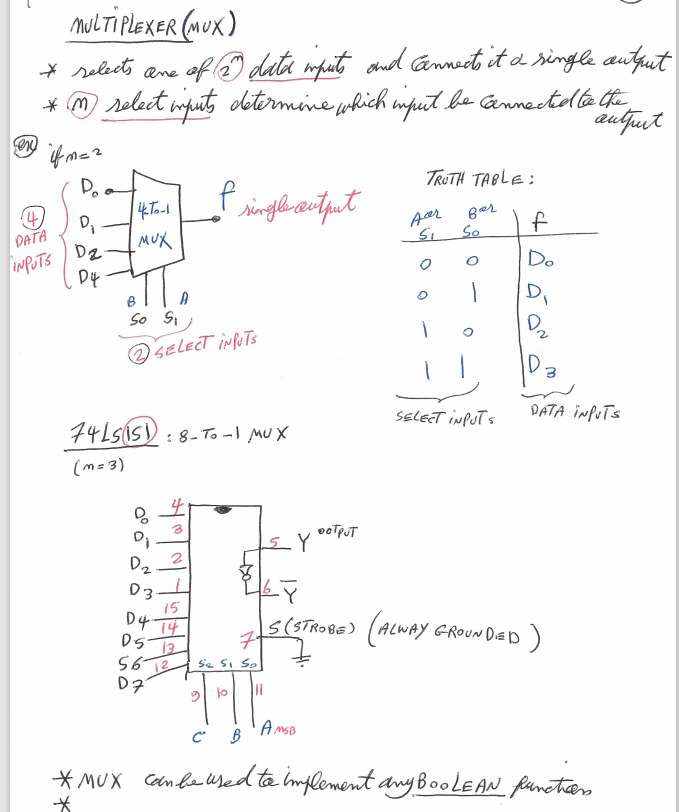 MULTIPLEXER (MUX)
* selects one of 2^m data inputs and connects it a single output
* m select inputs determine which input be connected to the
output
ex if m=2
D0
D1
D2
D4
4 DATA INPUTS
4-To-1
MUX
f single output
B A
S0 S1
2 SELECT INPUTS
TRUTH TABLE:
A or B or
S1 S0 f
0 0 D0
0 1 D1
1 0 D2
1 1 D3
SELECT INPUTS DATA INPUTS
74LS151 : 8-To-1 MUX
(m=3)
D0 4
D1 3
D2 2
D3 1
D4 15
D5 14
S6 13
D7 12
5 Y OUTPUT
6 Y̅
7 S (STROBE) (ALWAY GROUNDED)
S2 S1 S0
9 10 11
C B A MSB
* MUX can be used to implement any BOOLEAN functions
*